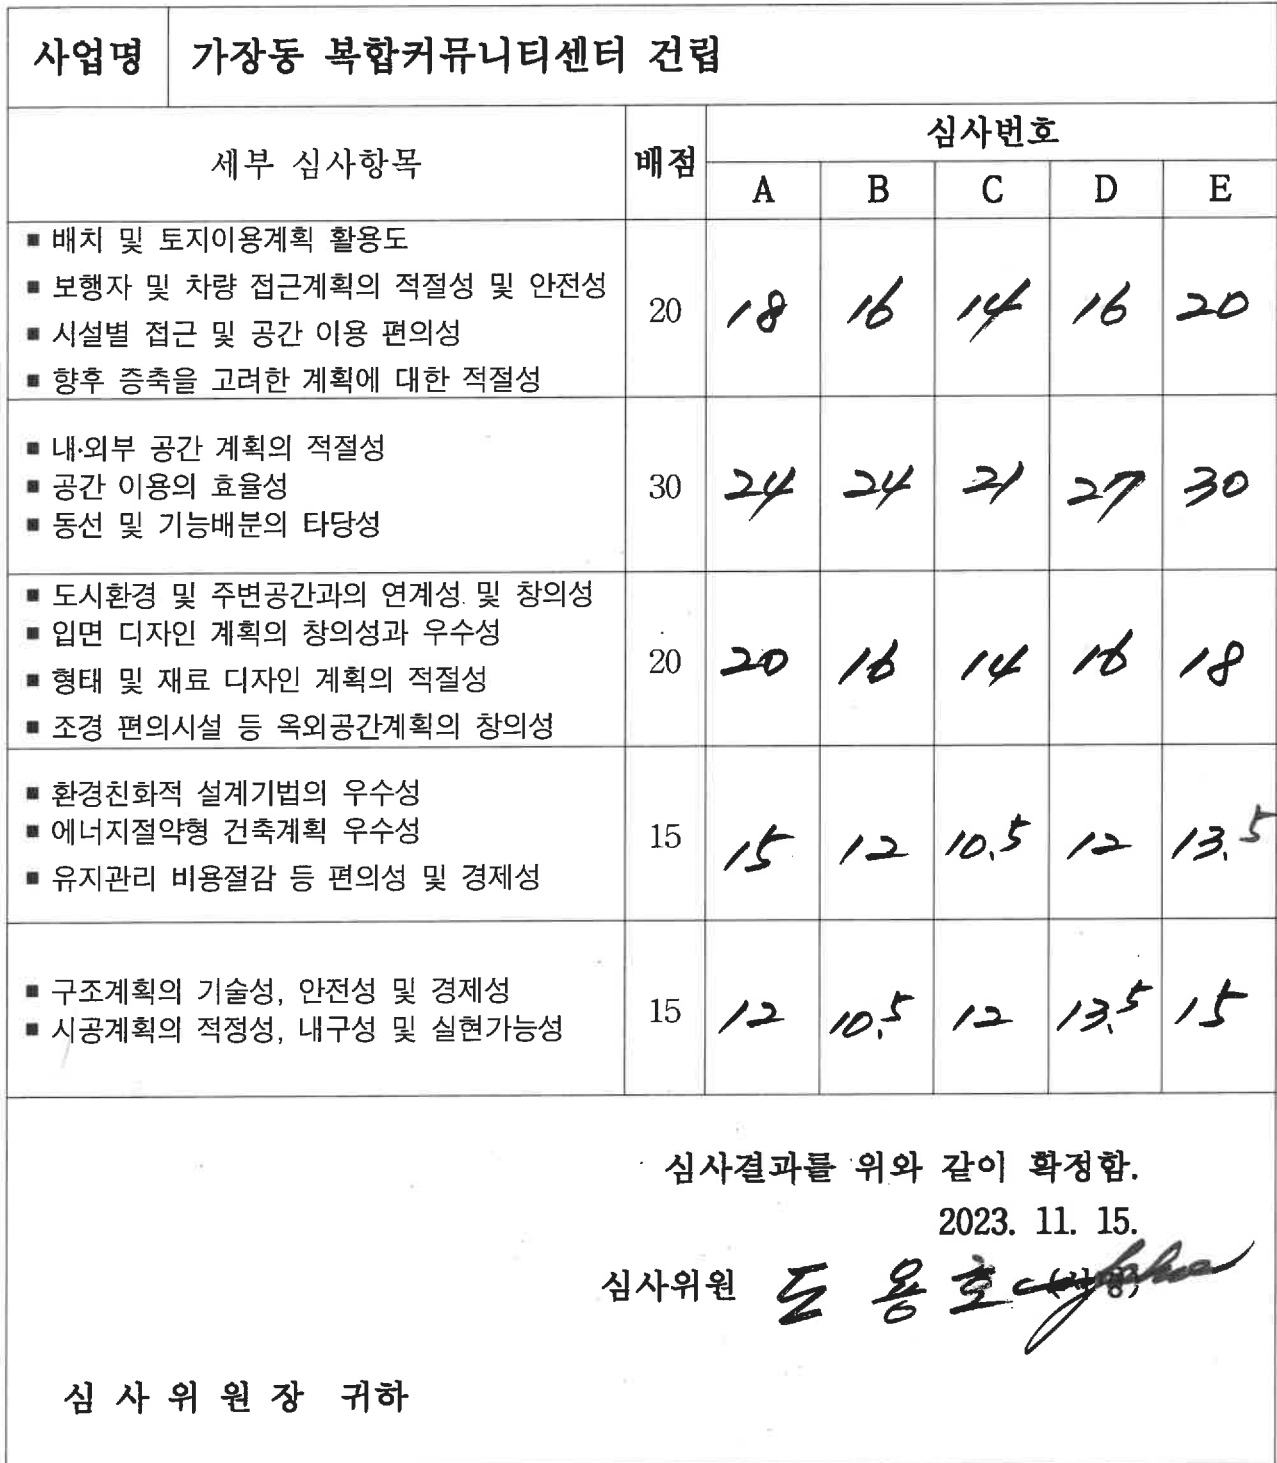 사업명 가장동 복합커뮤니티센터 건립
세부 심사항목 배점 심사번호
A B C D E
■ 배치 및 토지이용계획 활용도
■ 보행자 및 차량 접근계획의 적절성 및 안전성
■ 시설별 접근 및 공간 이용 편의성
■ 향후 증축을 고려한 계획에 대한 적절성
20 18 16 14 16 20
■ 내·외부 공간 계획의 적절성
■ 공간 이용의 효율성
■ 동선 및 기능배분의 타당성
30 24 24 21 27 30
■ 도시환경 및 주변공간과의 연계성 및 창의성
■ 입면 디자인 계획의 창의성과 우수성
■ 형태 및 재료 디자인 계획의 적절성
■ 조경 편의시설 등 옥외공간계획의 창의성
20 20 16 14 16 18
■ 환경친화적 설계기법의 우수성
■ 에너지절약형 건축계획 우수성
■ 유지관리 비용절감 등 편의성 및 경제성
15 15 12 10.5 12 13.5
■ 구조계획의 기술성, 안전성 및 경제성
■ 시공계획의 적정성, 내구성 및 실현가능성
15 12 10.5 12 13.5 15
심사결과를 위와 같이 확정함.
2023. 11. 15.
심사위원 도용호
심 사 위 원 장 귀하